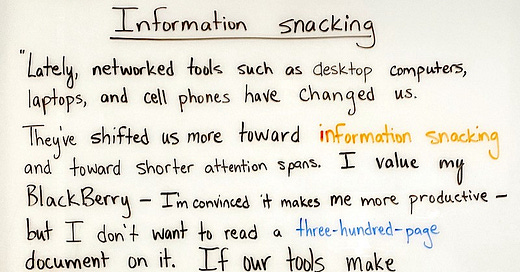 Information snacking
"Lately, networked tools such as desktop computers,
laptops, and cell phones have changed us.
They've shifted us more toward information snacking
and toward shorter attention spans. I value my
BlackBerry – I'm convinced it makes me more productive –
but I don't want to read a three-hundred-page
document on it. If our tools make